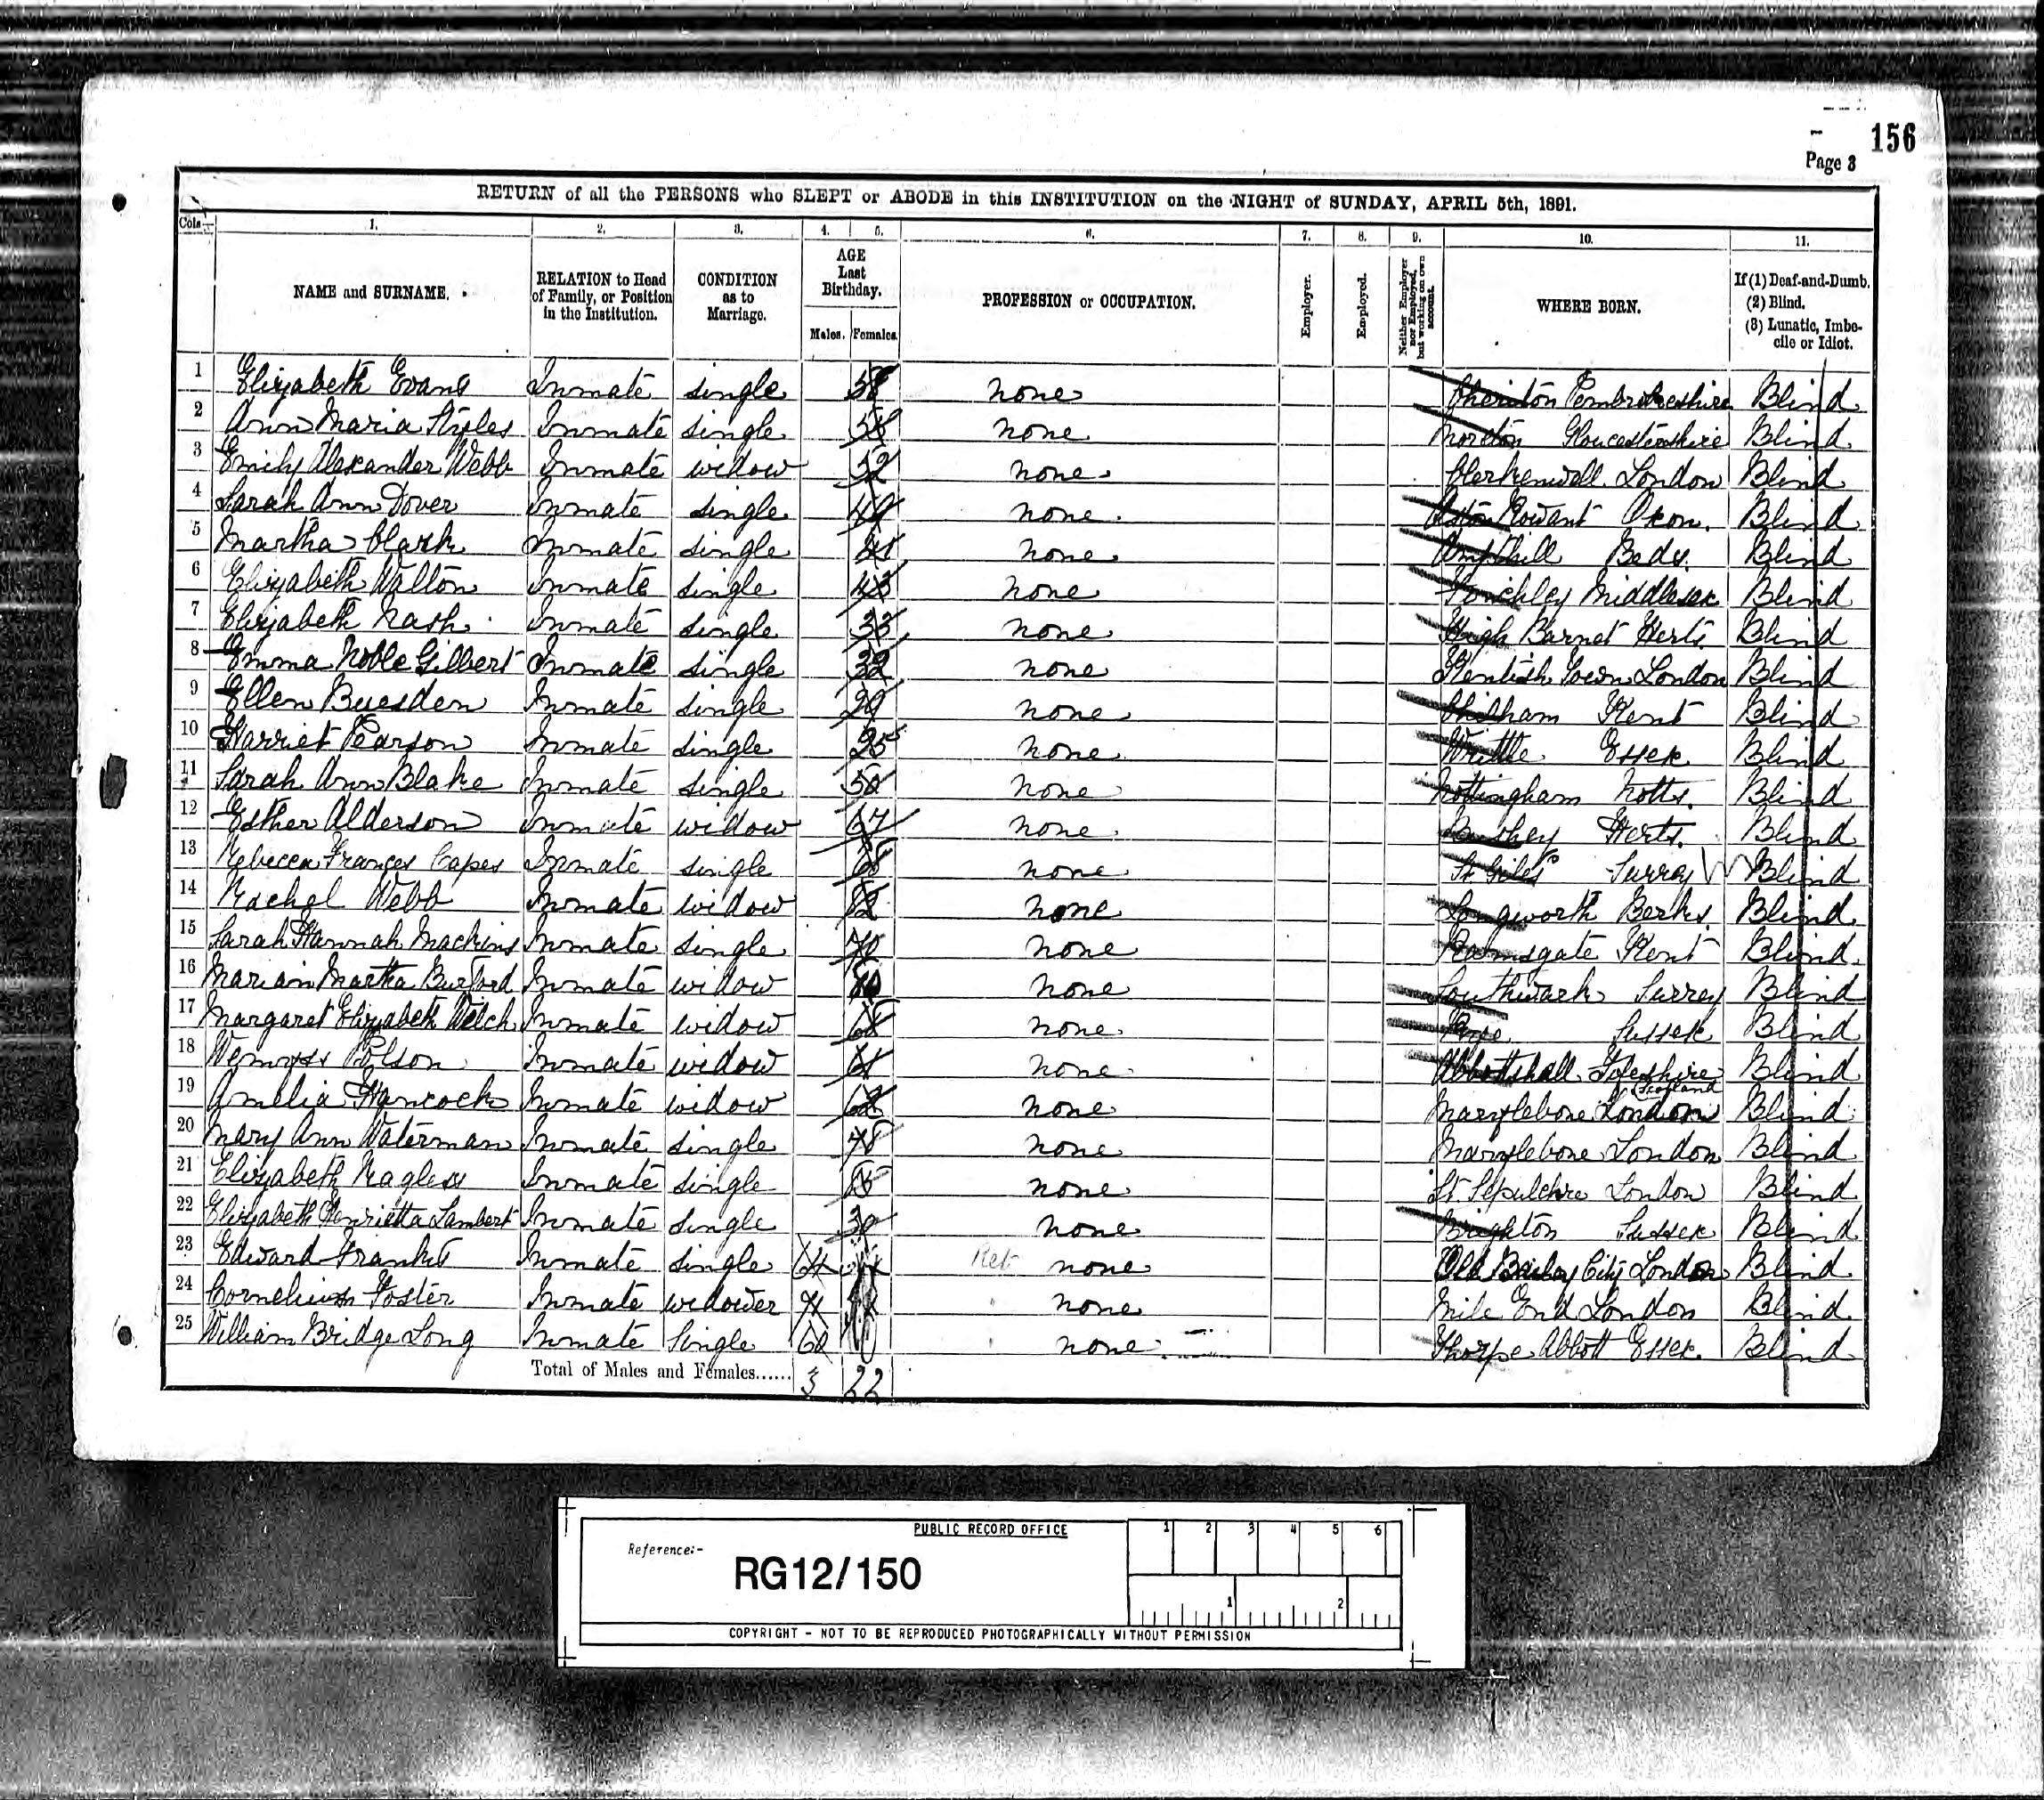 156
Page 3
RETURN of all the PERSONS who SLEPT or ABODE in this INSTITUTION on the NIGHT of SUNDAY, APRIL 5th, 1891.
Cols 1. 2. 3. 4. 5. 6. 7. 8. 9. 10. 11.
NAME and SURNAME. RELATION to Head of Family, or Position in the Institution. CONDITION as to Marriage. AGE Last Birthday. Males. Females. PROFESSION or OCCUPATION. Employer. Employed. Neither Employer nor Employed, but working on own account. WHERE BORN. If (1) Deaf-and-Dumb. (2) Blind. (3) Lunatic, Imbecile or Idiot.
1 Elizabeth Evans Inmate single 58 none Pembrokeshire Blind
2 Ann Maria Styles Inmate single none Moreton Gloucestershire Blind
3 Emily Alexander Webb Inmate widow 52 none Clerkenwell London Blind
4 Sarah Ann Dover Inmate single 49 none Aston Rowant Oxon. Blind
5 Martha Clark Inmate single none Ampthill Beds. Blind
6 Elizabeth Walton Inmate single 43 none Finchley Middlesex Blind
7 Elizabeth Nash Inmate single 33 none High Barnet Herts. Blind
8 Emma Noble Gilbert Inmate single 32 none Kentish Town London Blind
9 Ellen Buesden Inmate single 29 none Chilham Kent Blind
10 Harriet Pearson Inmate single 25 none Writtle Essex Blind
11 Sarah Ann Blake Inmate single 50 none Nottingham Notts. Blind
12 Esther Alderson Inmate widow 67 none Bushey Herts. Blind
13 Rebecca Frances Capes Inmate single none St Giles Surrey Blind
14 Rachel Webb Inmate widow none Longworth Berks. Blind
15 Sarah Hannah Machins Inmate single none Ramsgate Kent Blind
16 Marian Martha Burford Inmate widow none Southwark Surrey Blind
17 Margaret Elizabeth Welch Inmate widow none Rye Sussex Blind
18 Wemyss Polson Inmate widow none Abbottshall Fifeshire Scotland Blind
19 Amelia Hancock Inmate widow 62 none Marylebone London Blind
20 Mary Ann Waterman Inmate single none Marylebone London Blind
21 Elizabeth Nagless Inmate single none St. Sepulchre London Blind
22 Elizabeth Henrietta Lambert Inmate single 30 none Brighton Sussex Blind
23 Edward Inmate single 64 Ret none Old Bailey City London Blind
24 Cornelius Foster Inmate widower none Mile End London Blind
25 William Bridge Long Inmate Single 60 none Thorpe Abbott Essex Blind
Total of Males and Females...... 3 22
PUBLIC RECORD OFFICE
Reference:-
RG12/150
1 2 3 4 5 6
1 2
COPYRIGHT - NOT TO BE REPRODUCED PHOTOGRAPHICALLY WITHOUT PERMISSION